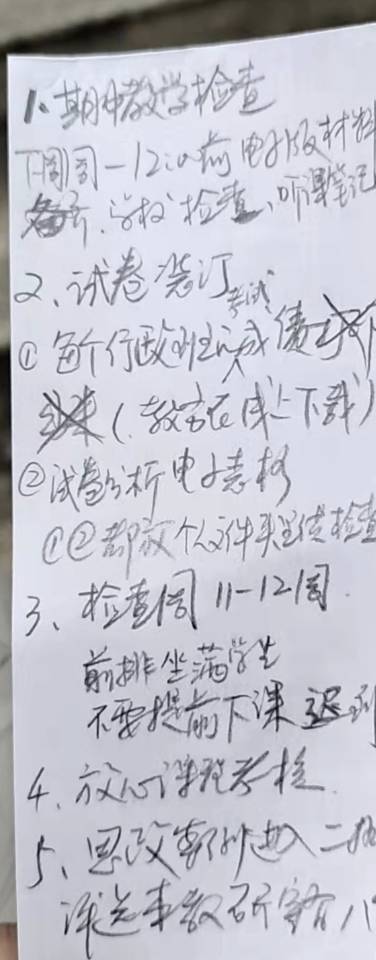 1、期中教学检查
下周周一12:00前电子版材料
备齐、学校检查、听课笔记
2、试卷装订
考试
①每个行政班完成
(教务在线上下载)
②试卷分析电子表格
①②都放个人文件夹里供检查
3、检查周11-12周
前排坐满学生
不要提前下课 迟到
4、放心课程考核
5、思政案例进入二批
评选本教研室